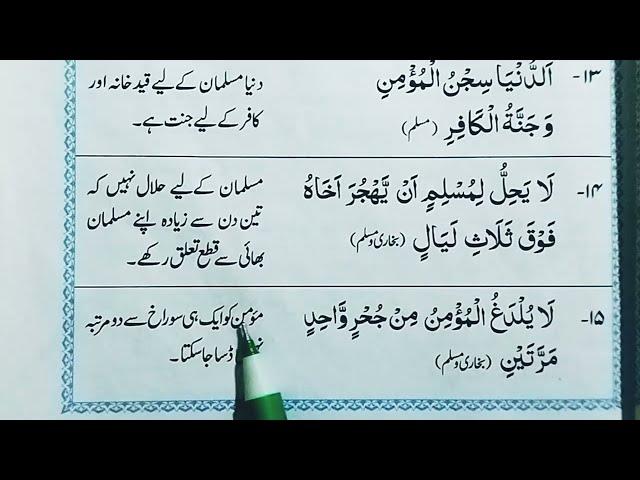 ۱۳- اَلدُّنْيَا سِجْنُ الْمُؤْمِنِ
وَجَنَّةُ الْكَافِرِ (مسلم)
دنیا مسلمان کے لیے قید خانہ اور
کافر کے لیے جنت ہے۔
۱۴- لَا يَحِلُّ لِمُسْلِمٍ اَنْ يَّهْجُرَ اَخَاهُ
فَوْقَ ثَلَاثِ لَيَالٍ (بخاری ومسلم)
مسلمان کے لیے حلال نہیں کہ
تین دن سے زیادہ اپنے مسلمان
بھائی سے قطع تعلق رکھے۔
۱۵- لَا يُلْدَغُ الْمُؤْمِنُ مِنْ جُحْرٍ وَّاحِدٍ
مَرَّتَيْنِ (بخاری ومسلم)
مؤمن کو ایک ہی سوراخ سے دو مرتبہ
ڈسا جا سکتا۔